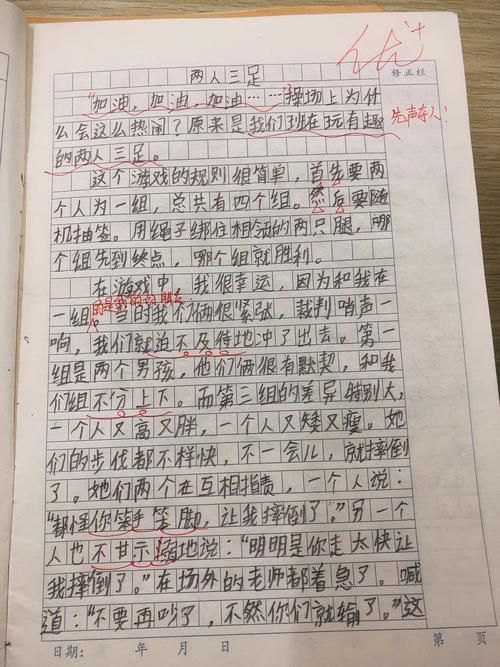 优+
两人三足
修正栏
"加油，加油，加油……"操场上为什
么会这么热闹？原来是我们班在玩有趣
先声夺人！
的两人三足。
这个游戏的规则很简单，首先要两
个人为一组，总共有四个组。然后要随
机抽签。用绳子绑住相邻的两只腿，哪
个组先到终点，哪个组就胜利。
在游戏中，我很幸运，因为和我在
一组的是我的好朋友。当时我们俩很紧张，裁判哨声一
响，我们就迫不及待地冲了出去。第一
组是两个男孩，他们俩很有默契，和我
们组不分上下。而第三组的差异特别大，
一个人又高又胖，一个人又矮又瘦。她
们的步伐都不样快，不一会儿，就摔倒
了。她们两个在互相指责，一个人说：
"都怪你笨手笨脚，让我摔倒了。"另一个
人也不甘示弱地说："明明是你走太快让
我摔倒了。"在场外的老师都着急了。喊
道："不要再吵了，不然你们就输了。"这
日期： 年 月 日 第 页